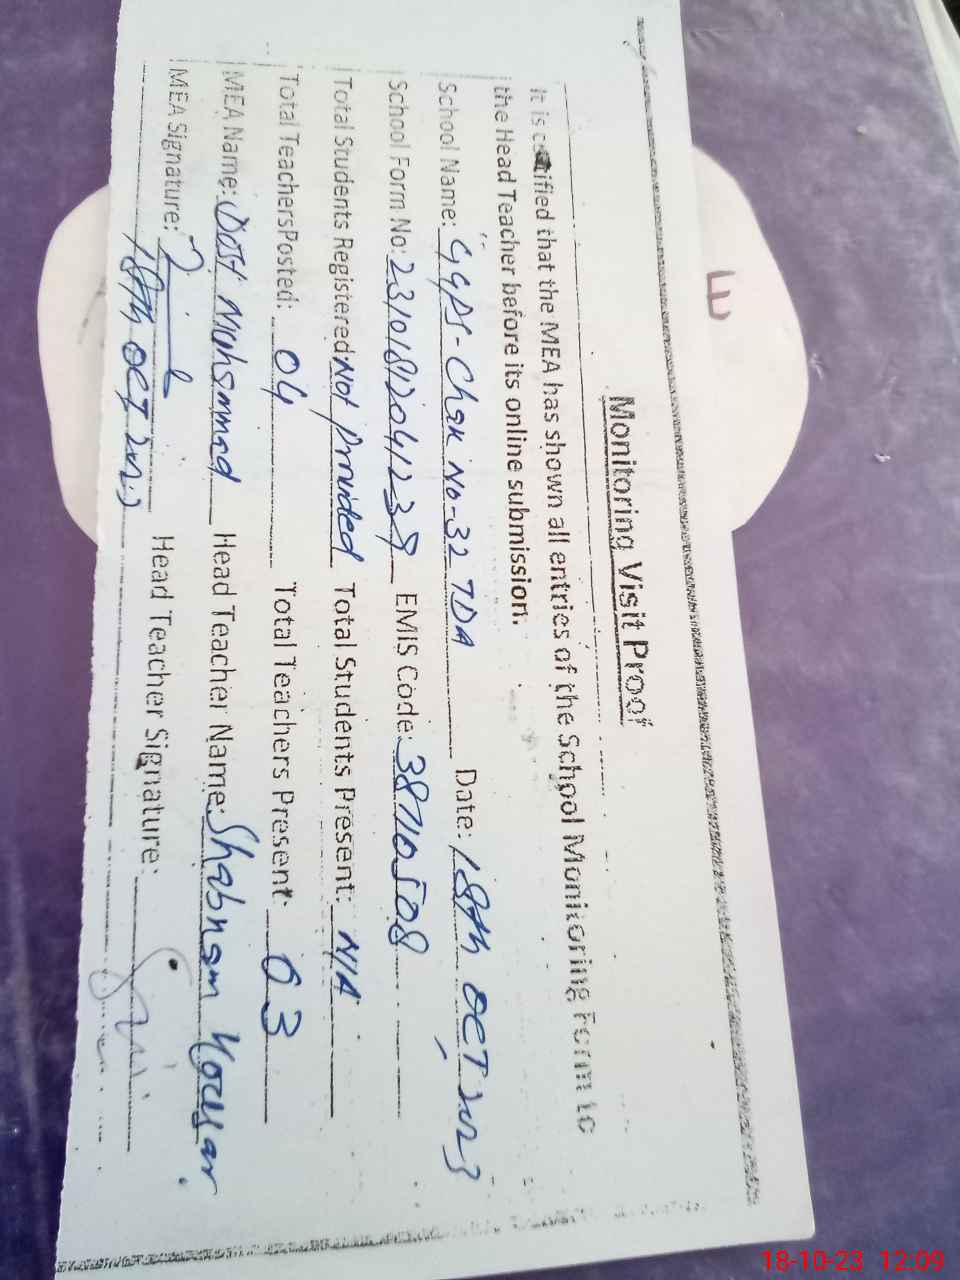 Monitoring Visit Proof
It is certified that the MEA has shown all entries of the School Monitoring Form to
the Head Teacher before its online submission.
School Name: GGPS-Chak No-32 TDA Date: 18th OCT 2023
School Form No: EMIS Code: 38710508
Total Students Registered Not Provided Total Students Present: N/A
Total TeachersPosted: 04 Total Teachers Present: 03
MEA Name: Dost Muhammad Head Teacher Name: Shabnam Kousar
MEA Signature: Head Teacher Signature:
18th OCT 2023
E
18-10-23 12:09